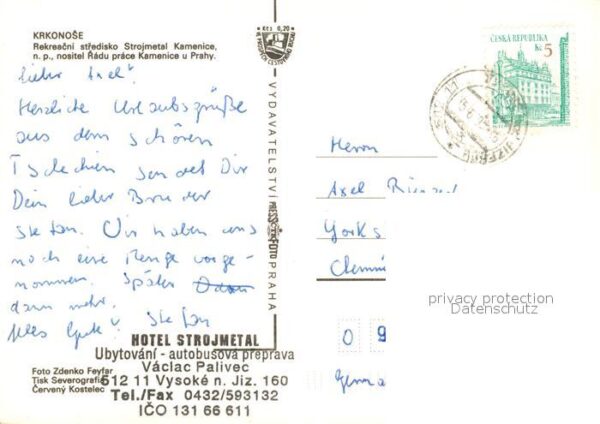 KRKONOŠE
Rekreační středisko Strojmetal Kamenice,
n. p., nositel Řádu práce Kamenice u Prahy.
Kčs 0,20
VE PROSPĚCH CESTOVNÍHO RUCHU
ČESKÁ REPUBLIKA
Kč 5
Lieber Axel!
Herzliche Urlaubsgrüße
aus dem schönen
Tschechien sendet Dir
Dein lieber Bruder
Stefan. Wir haben uns
noch eine Menge vorge-
nommen. Später
dann mehr.
Alles Gute! Stefan
VYDAVATELSTVÍ PRESSFOTO PRAHA
Herrn
Axel
Yorks
Chemni
0 9
privacy protection
Datenschutz
HOTEL STROJMETAL
Ubytování - autobusová přeprava
Václav Palivec
512 11 Vysoké n. Jiz. 160
Tel./Fax 0432/593132
IČO 131 66 611
Foto Zdenko Feyfar
Tisk Severografie
Červený Kostelec